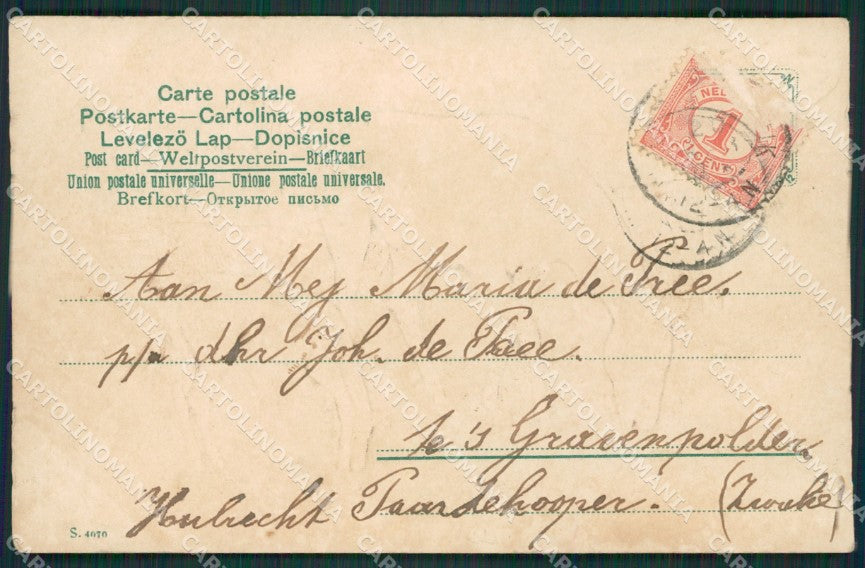 Carte postale
Postkarte—Cartolina postale
Levelező Lap—Dopisnice
Post card—Weltpostverein—Briefkaart
Union postale universelle—Unione postale universale.
Brefkort—Открытое письмо
NED
1
CENT
Aan Mej Maria de Pree.
p/a dhr Joh. de Pree.
te 's Gravenpolder
Hubrecht Paardekooper. (Zwake)
S. 4070
CARTOLINOMANIA